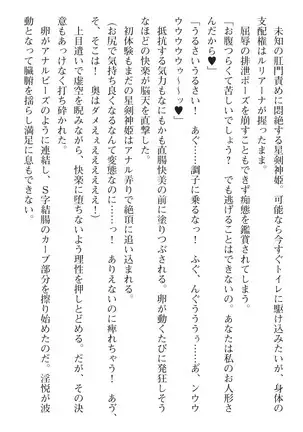 未知の肛門責めに悶絶する星剣神姫。可能なら今すぐトイレに駆け込みたいが、身体の
支配権はルリアーナが握ったまま。
屈辱の排泄ポーズを崩すこともできず痴態を鑑賞されてしまう。
「お腹つらくて苦しいでしょう？　でも逃げることはできないの。あなたは私のお人形さ
んだから♥」
「うるさいうるさい！　あぐ……調子に乗るなっ！　ふぐ、んぐうううぅ……ンウウ
ウウウウウゥぅ～～～♥」
抵抗する気力もなにもかも直腸快美の前に塗りつぶされる。卵が動くたびに発狂しそう
なほどの快楽が脳天を直撃した。
初体験もまだの星剣神姫はアナル弄りで絶頂に追い込まれる。
（お尻で気持ち良くなるなんて変態なのに……っ！　ありえないのに痺れちゃう！　あづ、
そ、そこは！　奥はダメェェェェェェェェ）
上目遣いで虚空を睨みながら、快楽に堕ちないよう理性を押しとどめる。だが、その決
意もあっけなく打ち砕かれた。
卵がアナルビーズのように連結し、Ｓ字結腸のカーブ部分を擦り始めたのだ。淫悦が波
動となって臓腑を揺らし満足に息もできない。